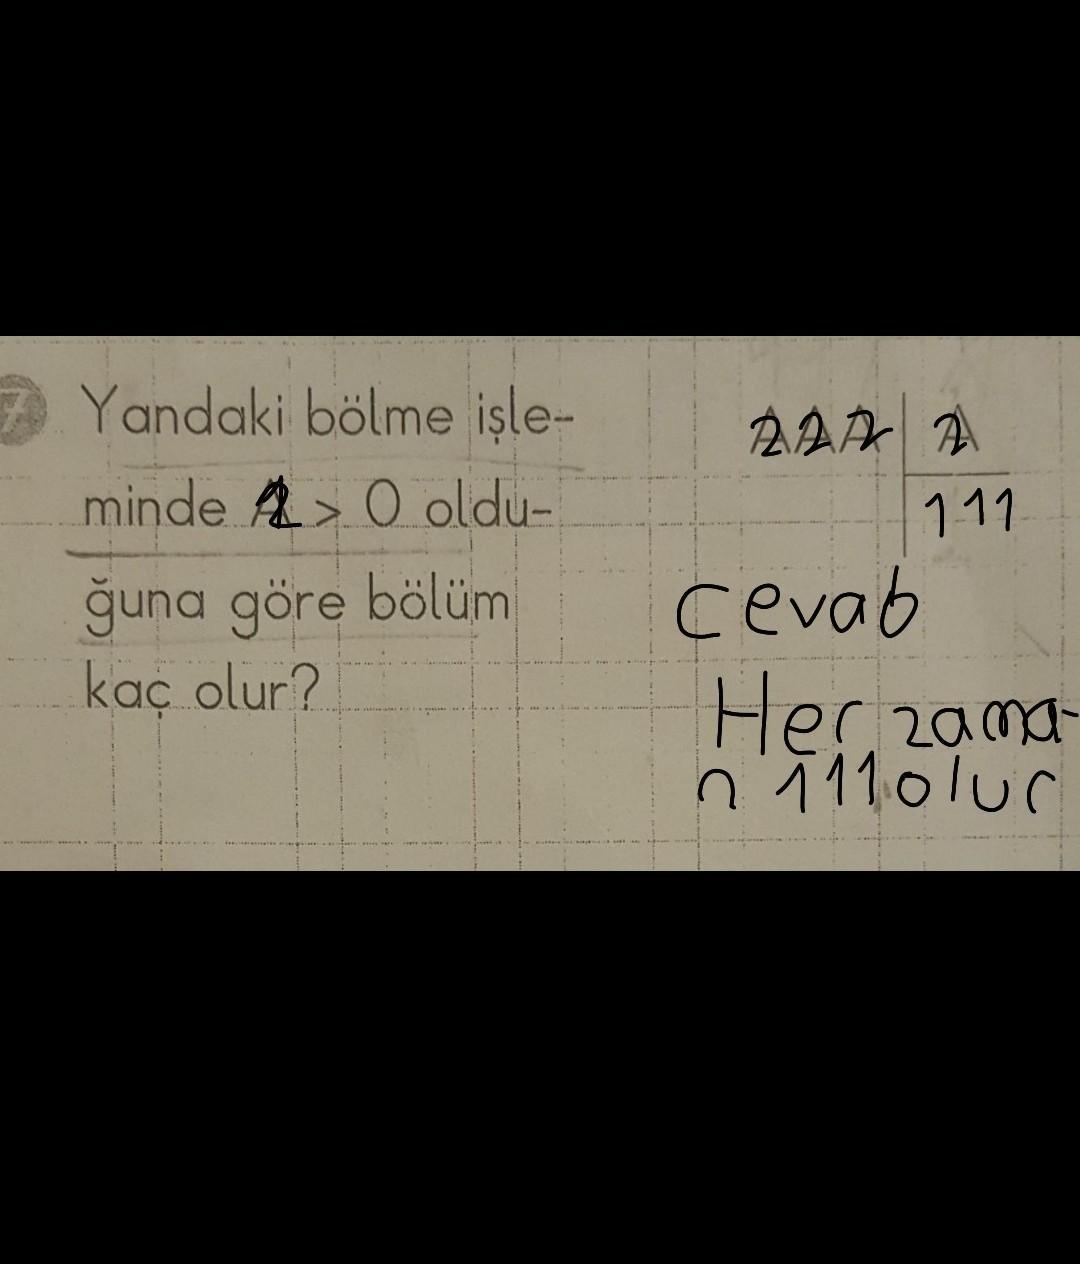 7 Yandaki bölme işle-
minde 2 > 0 oldu-
ğuna göre bölüm
kaç olur?
222 2
111
cevab
Her zama-
n 111 olur